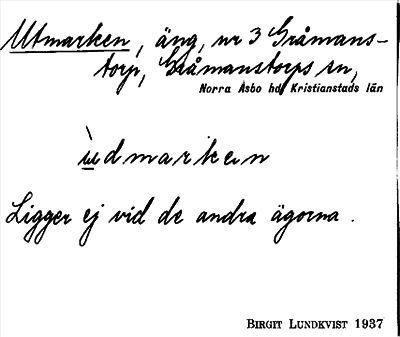 Utmarken, äng, nr 3 Gråmans-
torp, Gråmanstorps sn,
Norra Åsbo hd Kristianstads län
ùdmarken
Ligger ej vid de andra ägorna.
BIRGIT LUNDKVIST 1937